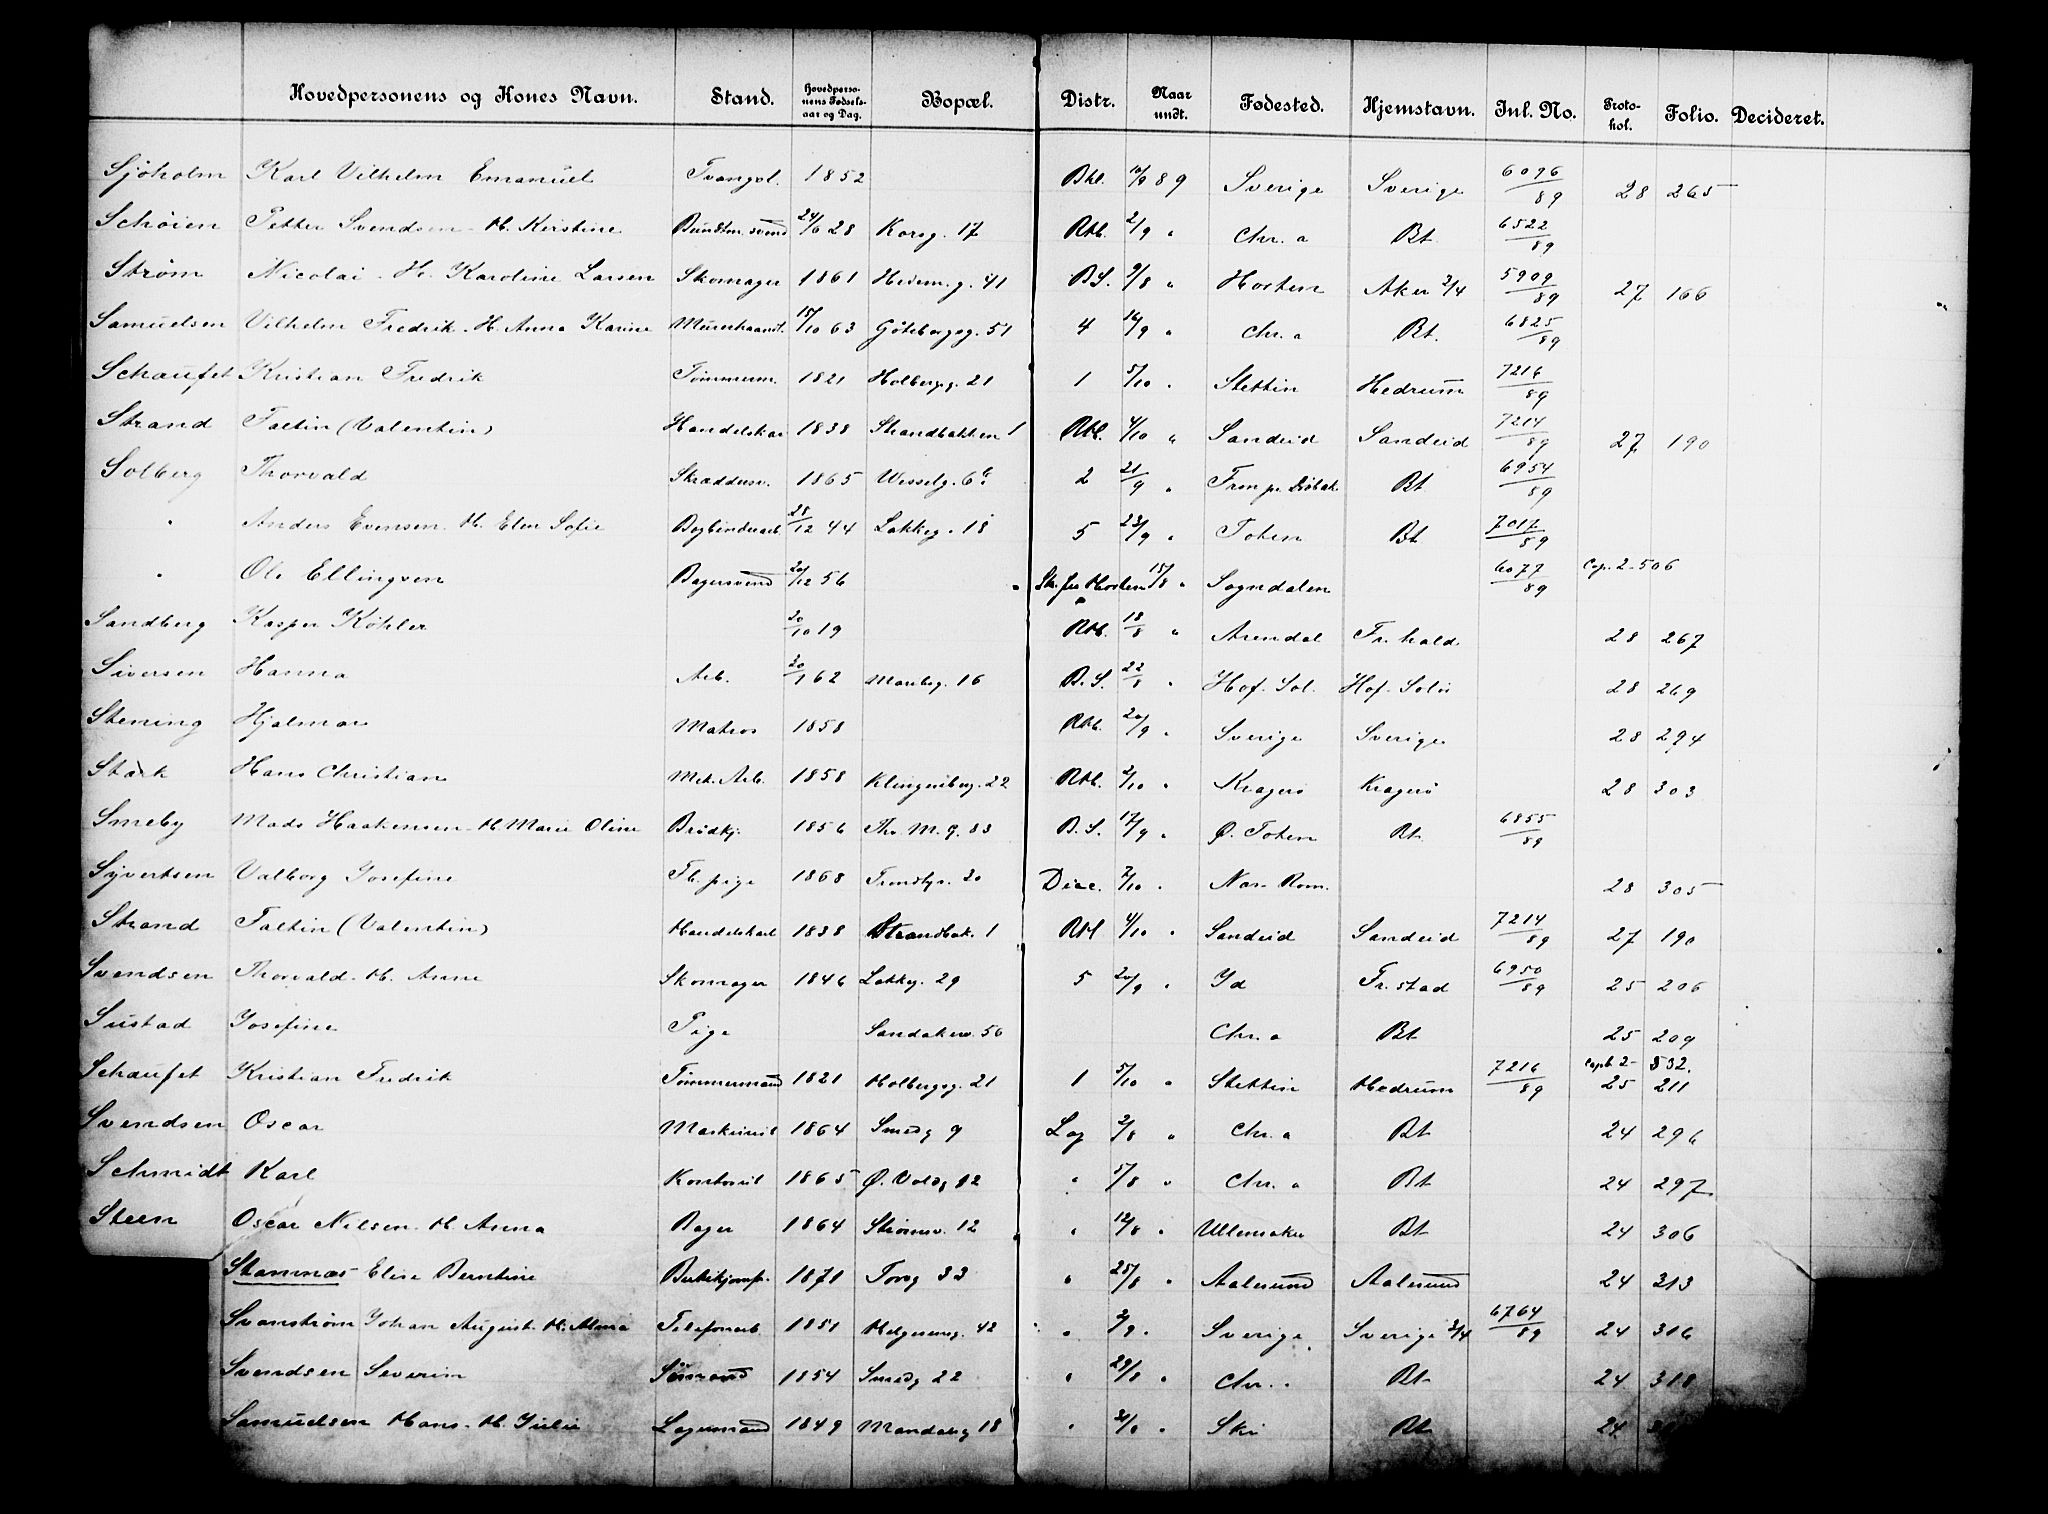 Hovedpersonens og Kones Navn. Stand. Hovedpersonens Fødselsaar og Dag. Bopæl. Distr. Naar undt. Fødested. Hjemstavn. Jnl. No. Protokol. Folio. Decideret.
Sjøholm Karl Vilhelm Emanuel Tvangsl. 1852 Bhl. 10/9 89 Sverige Sverige 6096/89 28 265
Schøien Petter Svendsen - H. Kirstine Bundtm. svend 24/6 28 Korsg. 17 Rtl. 2/9 " Chr.a Bt 6522/89
Strøm Nicolai - H. Karoline Larsen Skomager 1861 Hedem.g. 41 B.S. 9/8 " Horten Aker 3/4 5909/89 27 166
Samuelsen Vilhelm Fredrik - H. Anna Karine Murerhaandt. 15/10 63 Göteborgsg. 51 4 16/9 " Chr.a Bt. 6825/89
Schaufet Kristian Fredrik Tømmerm. 1821 Holbergsg. 21 1 5/10 " Stettin Hedrum 7216/89
Strand Faltin (Valentin) Handelskar 1838 Strandbakken 1 Rtl. 4/10 " Sandeid Sandeid 7214/89 27 190
Solberg Thorvald Skræddersv. 1865 Wesselg. 6 2 21/9 " Fron pr. Drøbak Bt 6954/89
" Anders Evensen - H. Elen Sofie Bogbinderarb. 28/12 44 Lakkeg. 18 5 23/9 " Toten Bt 7017/89
" Ole Ellingsen Bagersvend 20/12 56 " Sk. fra Horten 15/8 " Sogndalen 6077/89 Cop. 2 - 506
Sandberg Kasper Køhler 20/10 19 Rtl. 18/8 " Arendal Fr. hald 28 267
Siversen Hanna Arb. 20/1 62 Maribg. 16 B.S. 22/8 " Hof. Sol. Hof. Solør 28 269
Stening Hjalmar Matros 1858 Rtl. 20/9 " Sverige Sverige 28 294
Stærk Hans Christian Mek. Arb. 1858 Klingenbeg. 22 Rtl. 2/10 " Kragerø Kragerø 28 303
Smeby Mads Haakensen - H. Marie Oline Brødkj. 1856 Th. M. g. 83 B.S. 17/9 " Ø. Toten Bt. 6855/89
Syvertsen Valborg Josefine Fb. pige 1868 Trondhjs. 20 Disc. 7/10 " Næs Rom. 28 305
Strand Faltin (Valentin) Handelskarl 1838 Strandbak. 1 Rtl 4/10 " Sandeid Sandeid 7214/89 27 190
Svendsen Thorvald - H. Anne Skomager 1846 Lakkeg. 29 5 20/9 " Id Fr. stad 6950/89 25 206
Sustad Josefine Pige Sandakerv. 56 Chr.a Bt 25 209
Schaufet Kristian Fredrik Tømmermand 1821 Holbergsg. 21 1 5/10 " Stettin Hedrum 7216/89 Copb 2 - 532. 25 211
Svendsen Oscar Maskinist 1864 Smedg 9 Log 2/8 " Chr.a Bt 24 296
Schmidt Karl Kontorist 1865 Ø. Voldg 12 " 5/8 " Chr.a Bt 24 297
Steen Oscar Nilsen - H. Anna Bager 1864 Strømsv. 12 " 12/8 " Ullensaker Bt 24 306
Stamnæs Elise Berntine Butikjomfr. 1871 Torvg 33 " 25/8 " Aalesund Aalesund 24 313
Svanstrøm Johan August - H. Alma Telefonarb. 1851 Helgesensg. 42 " 2/9 " Sverige Sverige 3/4 6764/89 24 316
Svendsen Severin Sømand 1854 Smedg 22 " 29/8 " Chr.a Bt 24 318
Samuelsen Hans - H. Julie Lagermand 1849 Mandalsg 18 " " Ski Bt 24